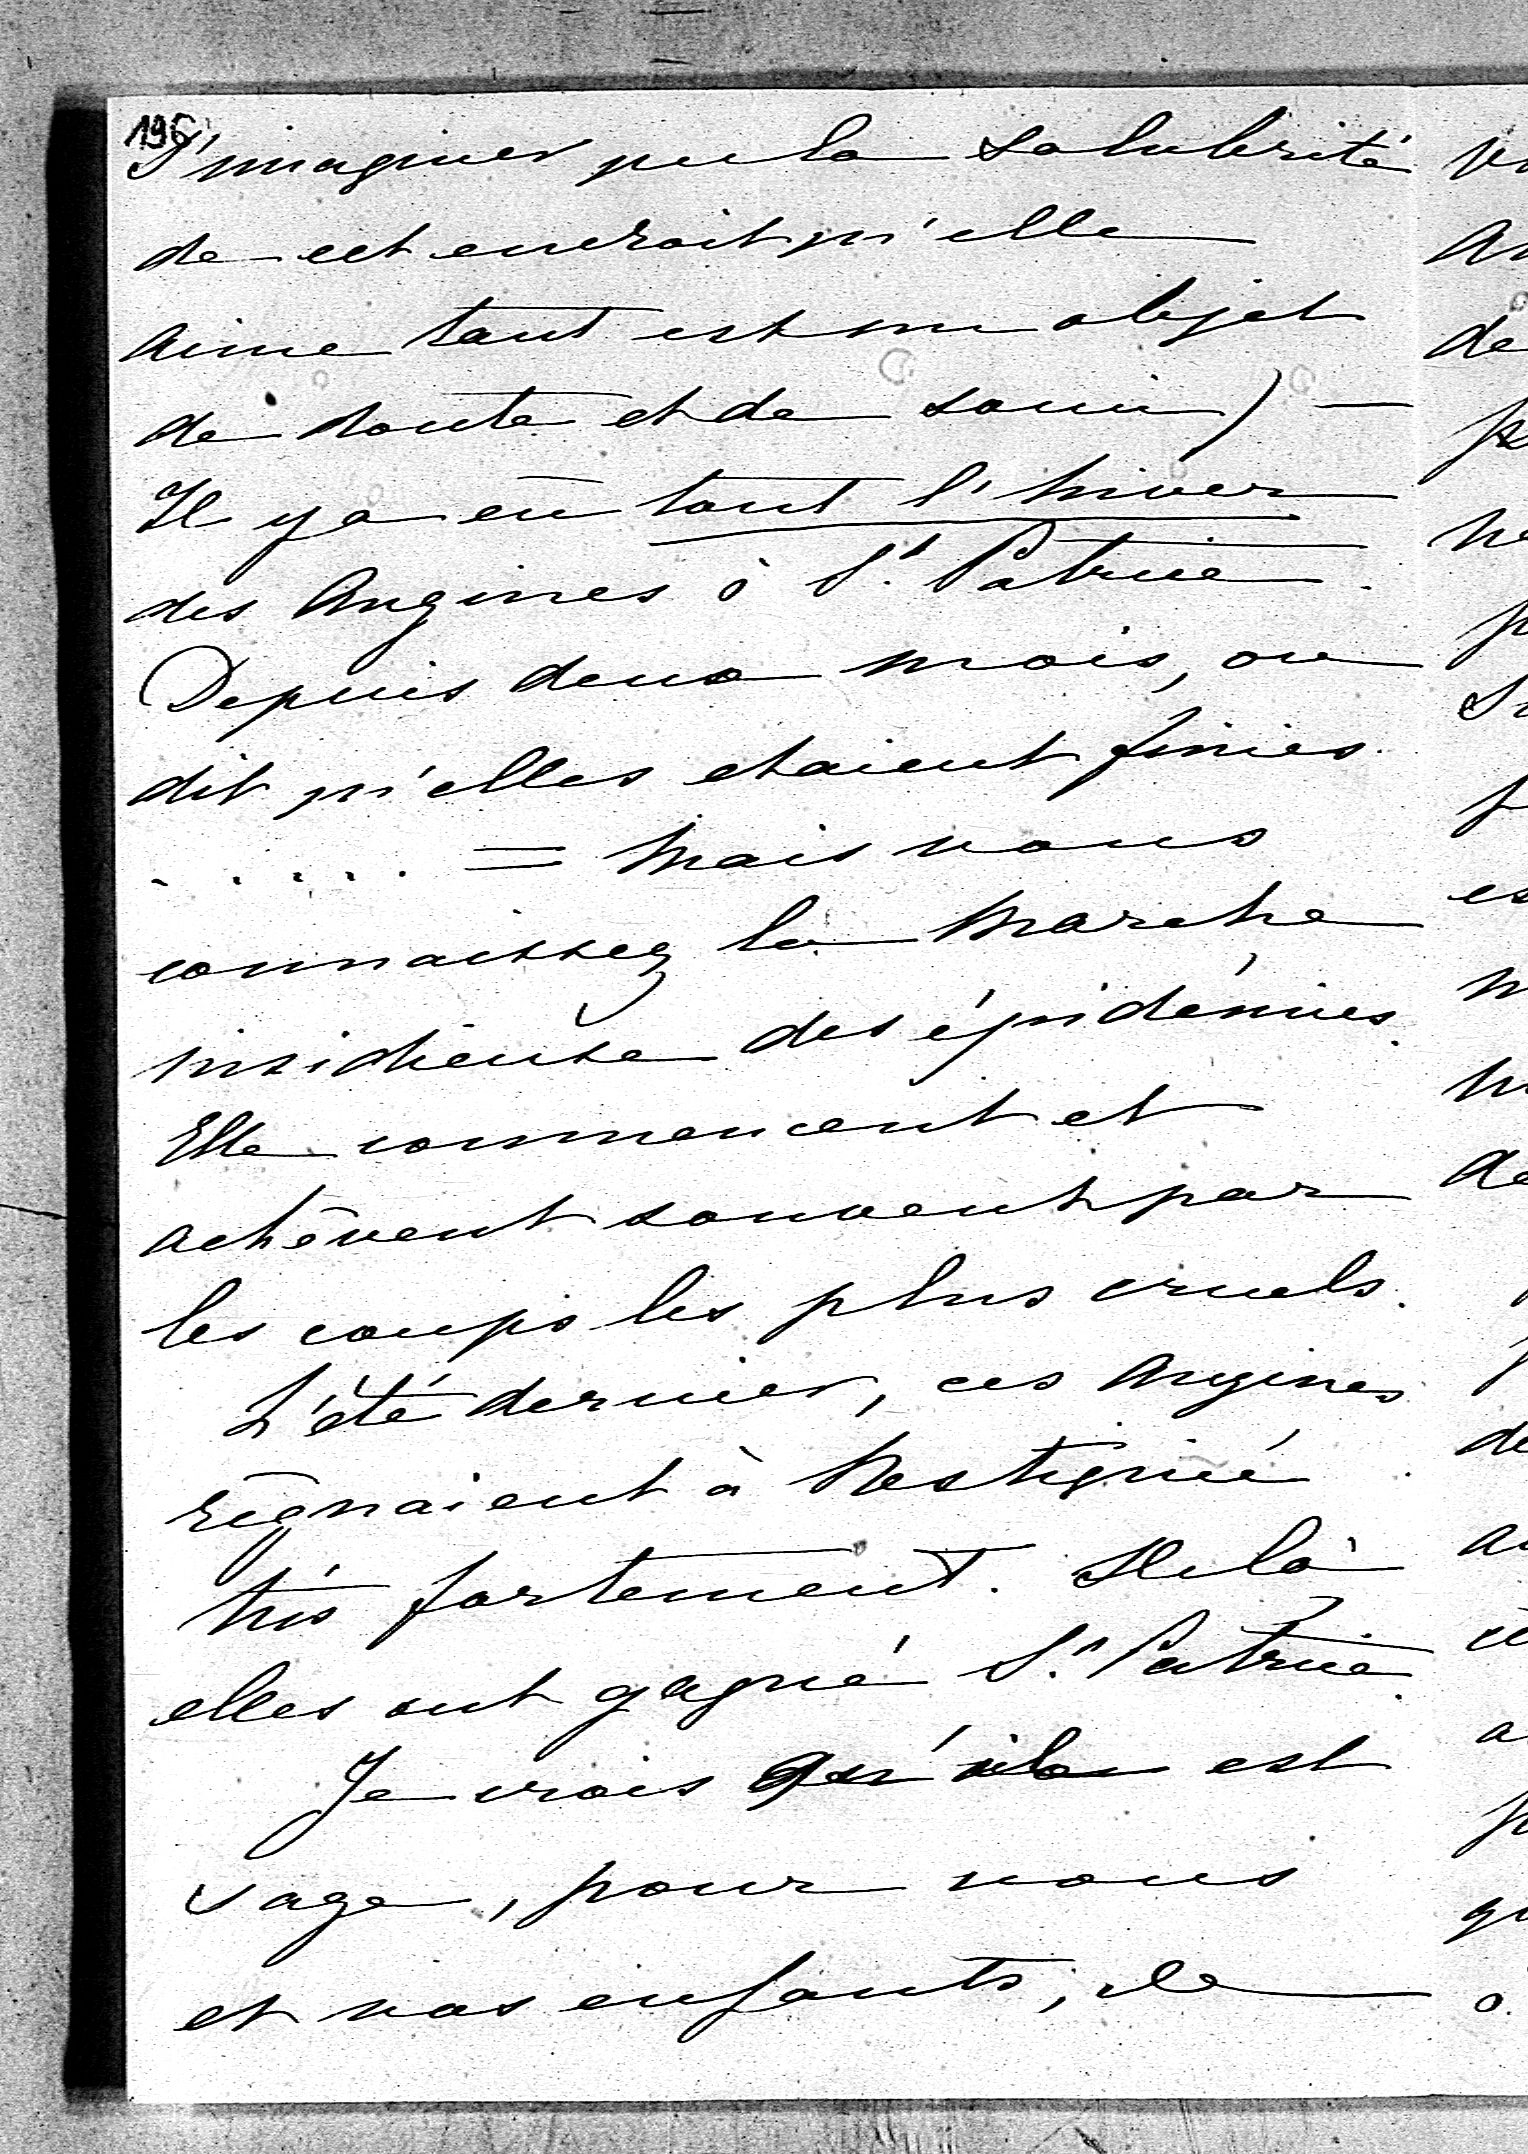 196
S'imaginer que la salubrité
de cet endroit qu'elle
aime tant est un objet
de doute et de souci) —
Il y a eu tout l'hiver
des Angines à St. Patrice.
Depuis deux mois, on
dit qu'elles etaient finies.
. . . . . = Mais vous
connaissez la Marche
insidieuse des épidémies.
Elle commencent et
achèvent souvent par
les coups les plus cruels.
L'été dernier, ces Angines
règnaient à Restigné
très fortement. De là
elles ont gagné St. Patrice.
Je crois qu'il est
sage, pour vous
et vos enfants, de